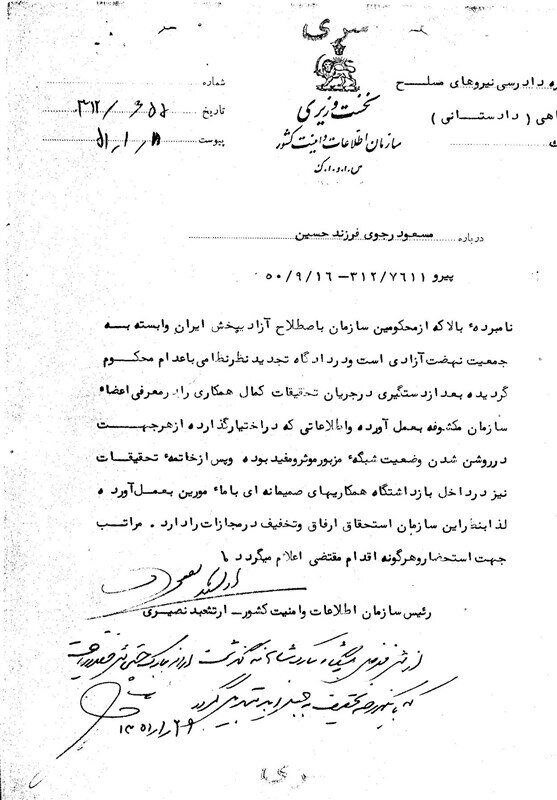 سری
ه دادرسی نیروهای مسلح
اهی ( دادستانی )
ك
نخست وزیری
سازمان اطلاعات و امنیت کشور
س.ا.و.ا.ک
شماره
تاریخ ۳۱۲/
پیوست
درباره مسعود رجوی فرزند حسین
پیرو ۳۱۲/۷۶۱۱-۵۰/۹/۱۶
نامبردهٔ بالا که از محکومین سازمان باصطلاح آزادیبخش ایران وابسته به
جمعیت نهضت آزادی است و در دادگاه تجدید نظر نظامی باعدام محکوم
گردیده بعد از دستگیری در جریان تحقیقات کمال همکاری را در معرفی اعضاء
سازمان مکشوفه بعمل آورده و اطلاعاتی که در اختیار گذارده از هر جهت
در روشن شدن وضعیت شبکهٔ مزبور موثر و مفید بوده و پس از خاتمهٔ تحقیقات
نیز در داخل بازداشتگاه همکاریهای صمیمانه ای با مأمورین بعمل آورده
لذا بنظر این سازمان استحقاق ارفاق و تخفیف در مجازات را دارد . مراتب
جهت استحضار و هرگونه اقدام مقتضی اعلام میگردد
رئیس سازمان اطلاعات و امنیت کشور - ارتشبد نصیری
از شرف عرض پیشگاه مبارک شاهانه گذشت
۱۳۵۱